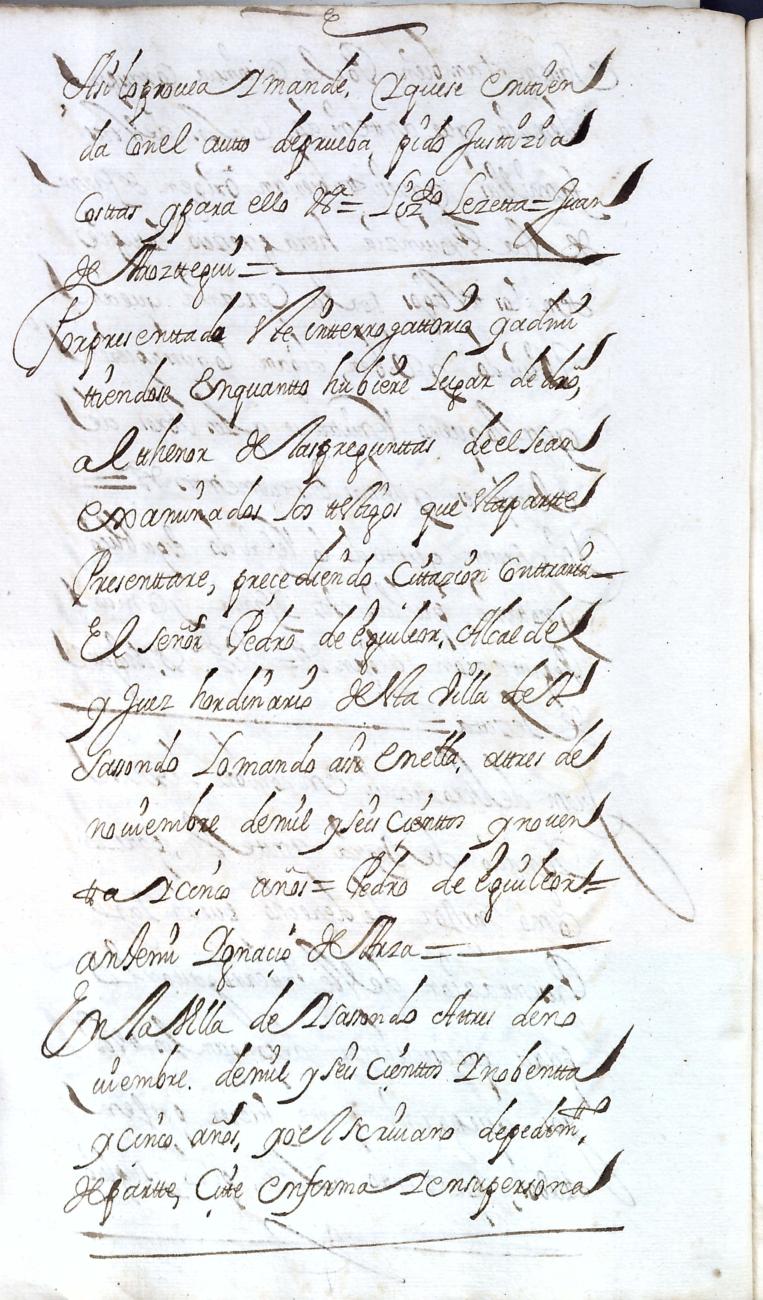 Asi lo provea Imande, Iquese entien
da conel autto deprueba, pido Justizia
costtas, ypara ello Nª= Lizdo Lezetta=Juan
de Aroztegui=
Porpresenttada este interrogattorio yadmi
ttiendose enquantto hubiere lugar de dro,
al thenor de laspregunttas deel sean
examinados los ttestigos que estapartte
Presenttare, precediendo cittazion conttraria
El señor Pedro de eguileor, Alcalde
y Juez hordinario desta Villa de I
sasondo Lo mando asi enella, attres de
noviembre demil yseis cienttos ynoven
tta I cinco años= Pedro de eguileor=
antemi Ignacio de Arza=
En la Villa de Isasondo Attres deno
viembre. demil yseis cienttos Inobentta
ycinco años, yo el scrivano depedimtto
departte, Citte enforma Iensupersona